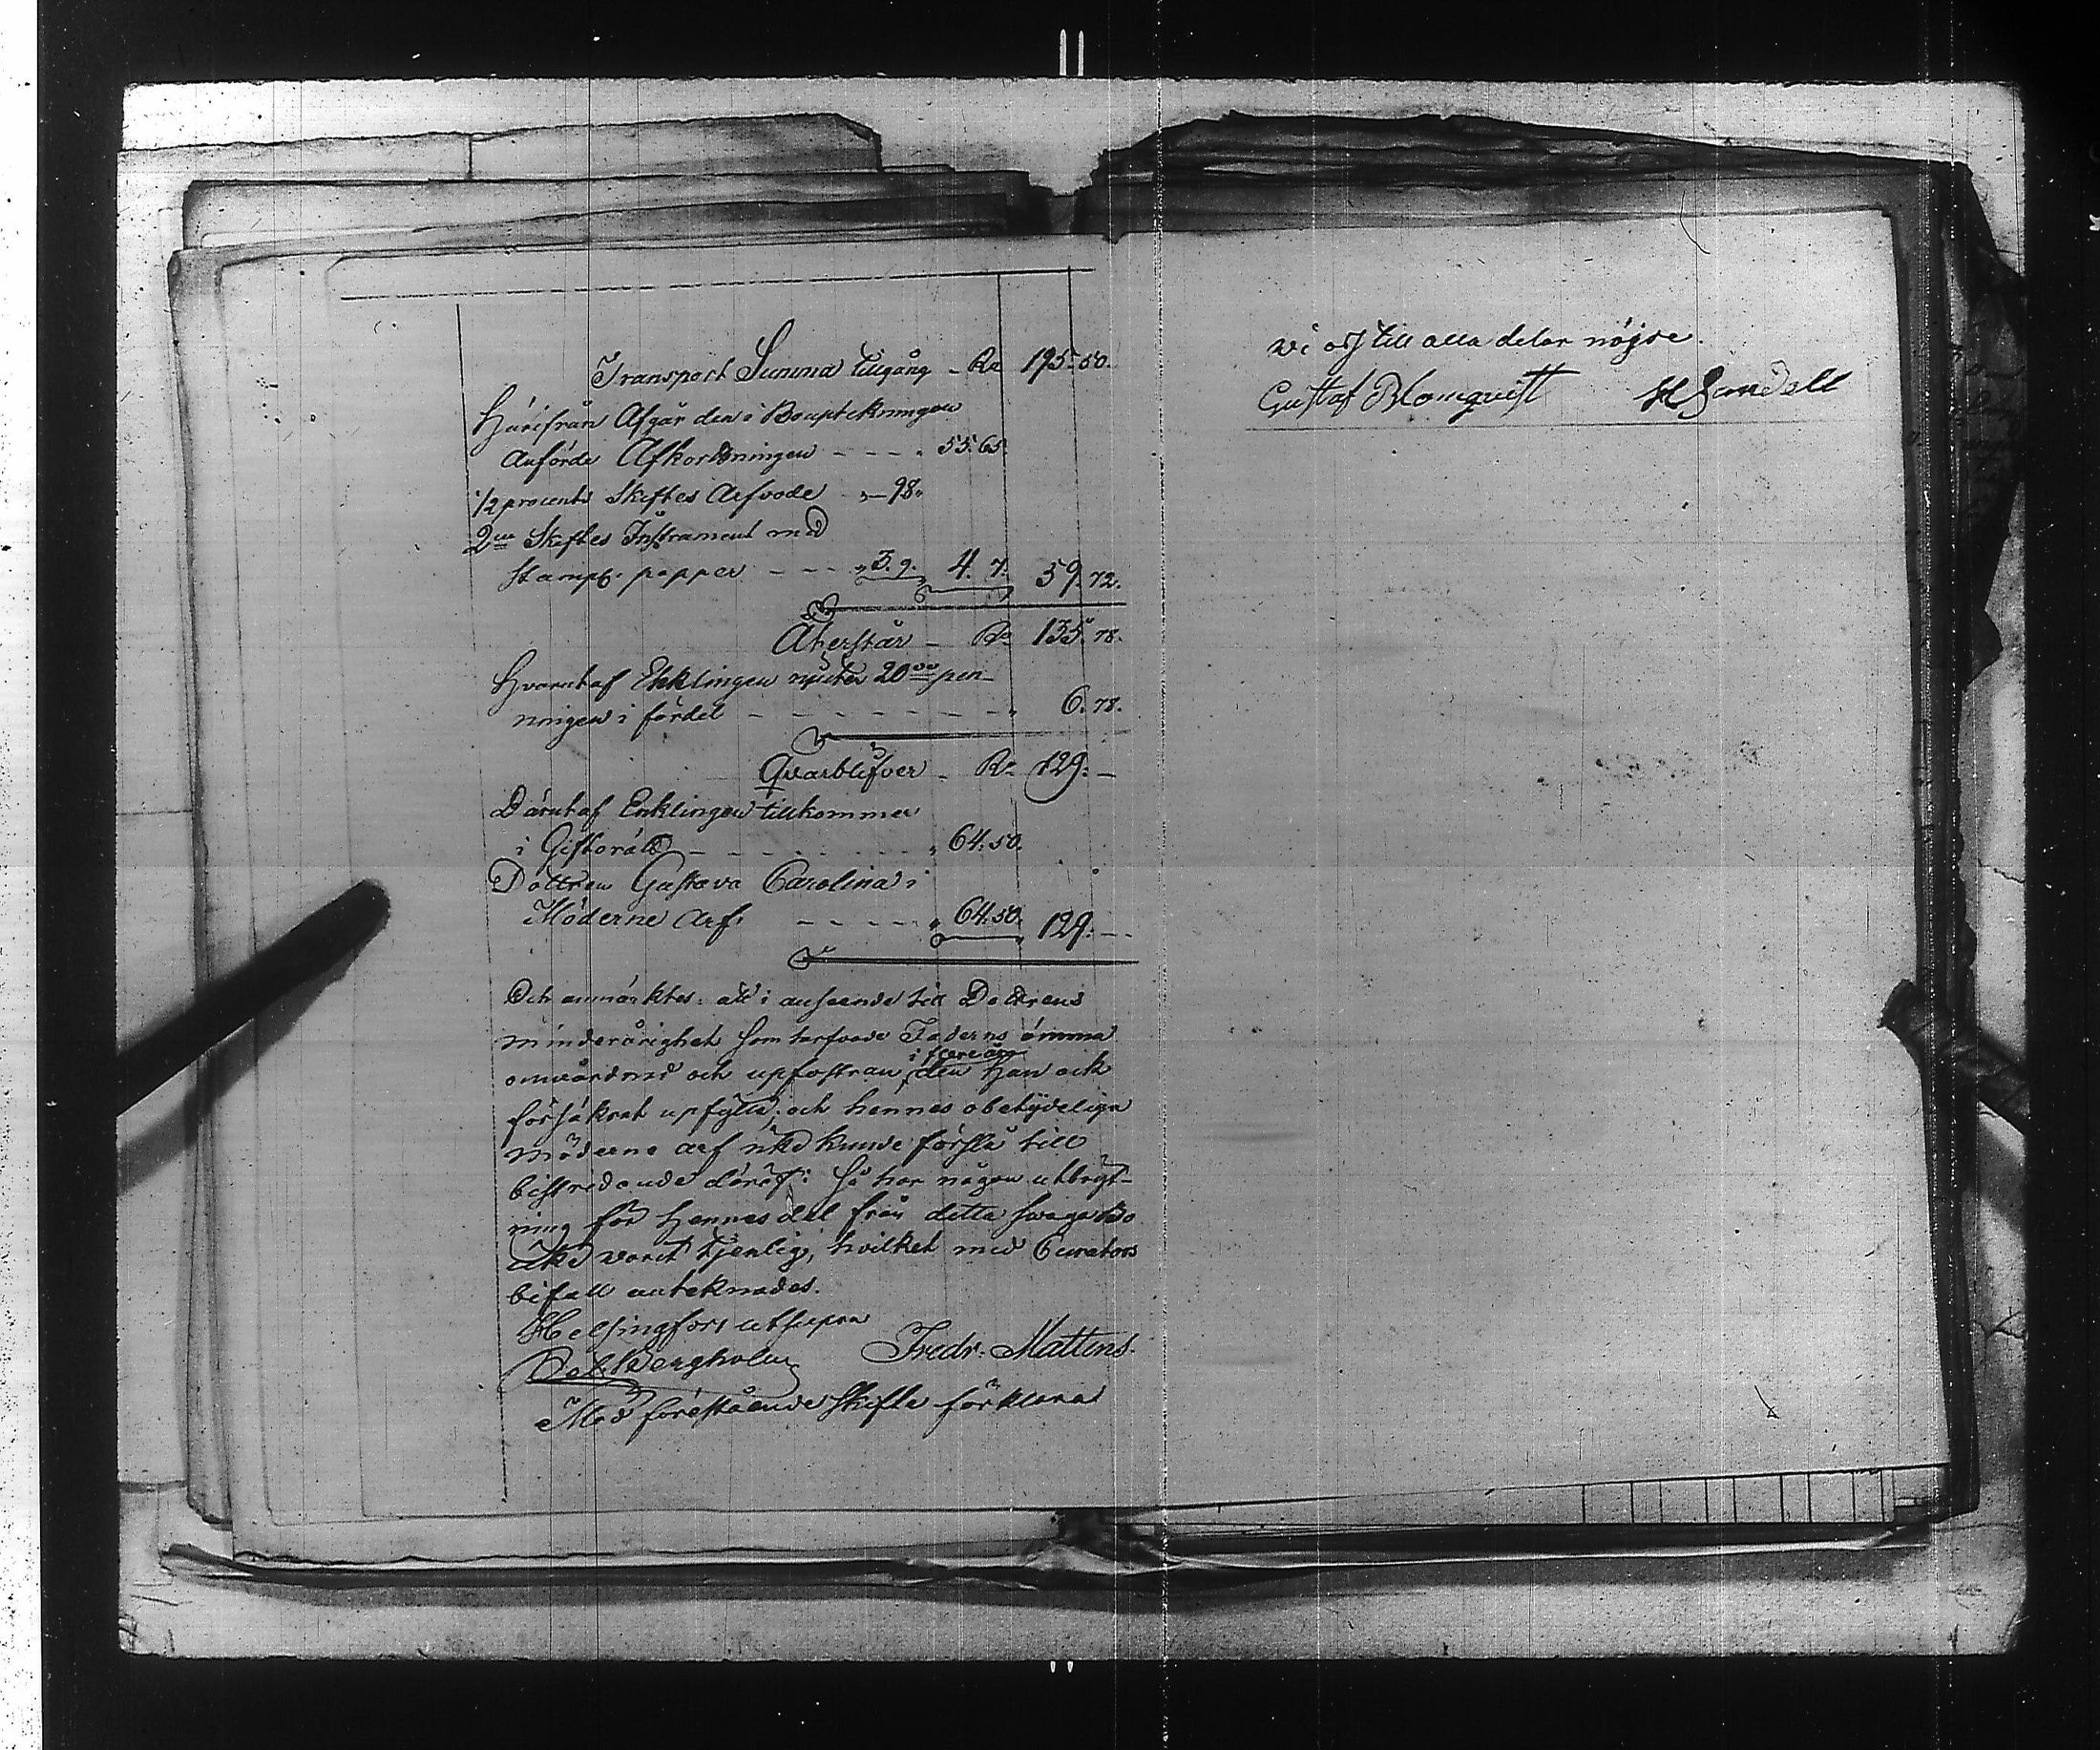 Transport Summa tillgång - Rr 195.50.
Härifrån Afgår den i Bouptekningen
anförde Afkortningen - - - - 55.65.
1/2 procents Skiftes Arfvode " - 98 "
2ne Skiftes Instrament med
Stampf. papper - - - " 3. 9. 4. 7. 59. 72.
Återstår - Rr 135. 78.
Hvarutaf Enklingen njuter 20de pen-
ningen i fördel - - - - - - - - " 6. 78.
Qvarblifver - Rr 129. -
Därutaf Enklingen tillkommer
i Giftorätt - - - - - - - " 64. 50.
Dottren Gustava Carolina i
Möderne Arf. - - - - - " 64. 50. 129. - -
Och anmärktes: att i anseende till Dottrens
minderårighet som tarfvade Faderns ömma
omvårdnad och upfostran i flere år den Han ock
försäkrat upfylla; och hennes obetydeliga
möderne arf icke kunde förslå till
bestridande däraf: Så har någon utbryt-
ning för Hennes del från detta svaga Bo
icke varit tjenlig, hvilket med Curators
bifall anteknades.
Helsingfors utsupra
Bergholm Fredr. Mattens.
Med förestående Skifte förklara
vi oss till alla delar nöjde.
Gustaf Blomquist Sundell